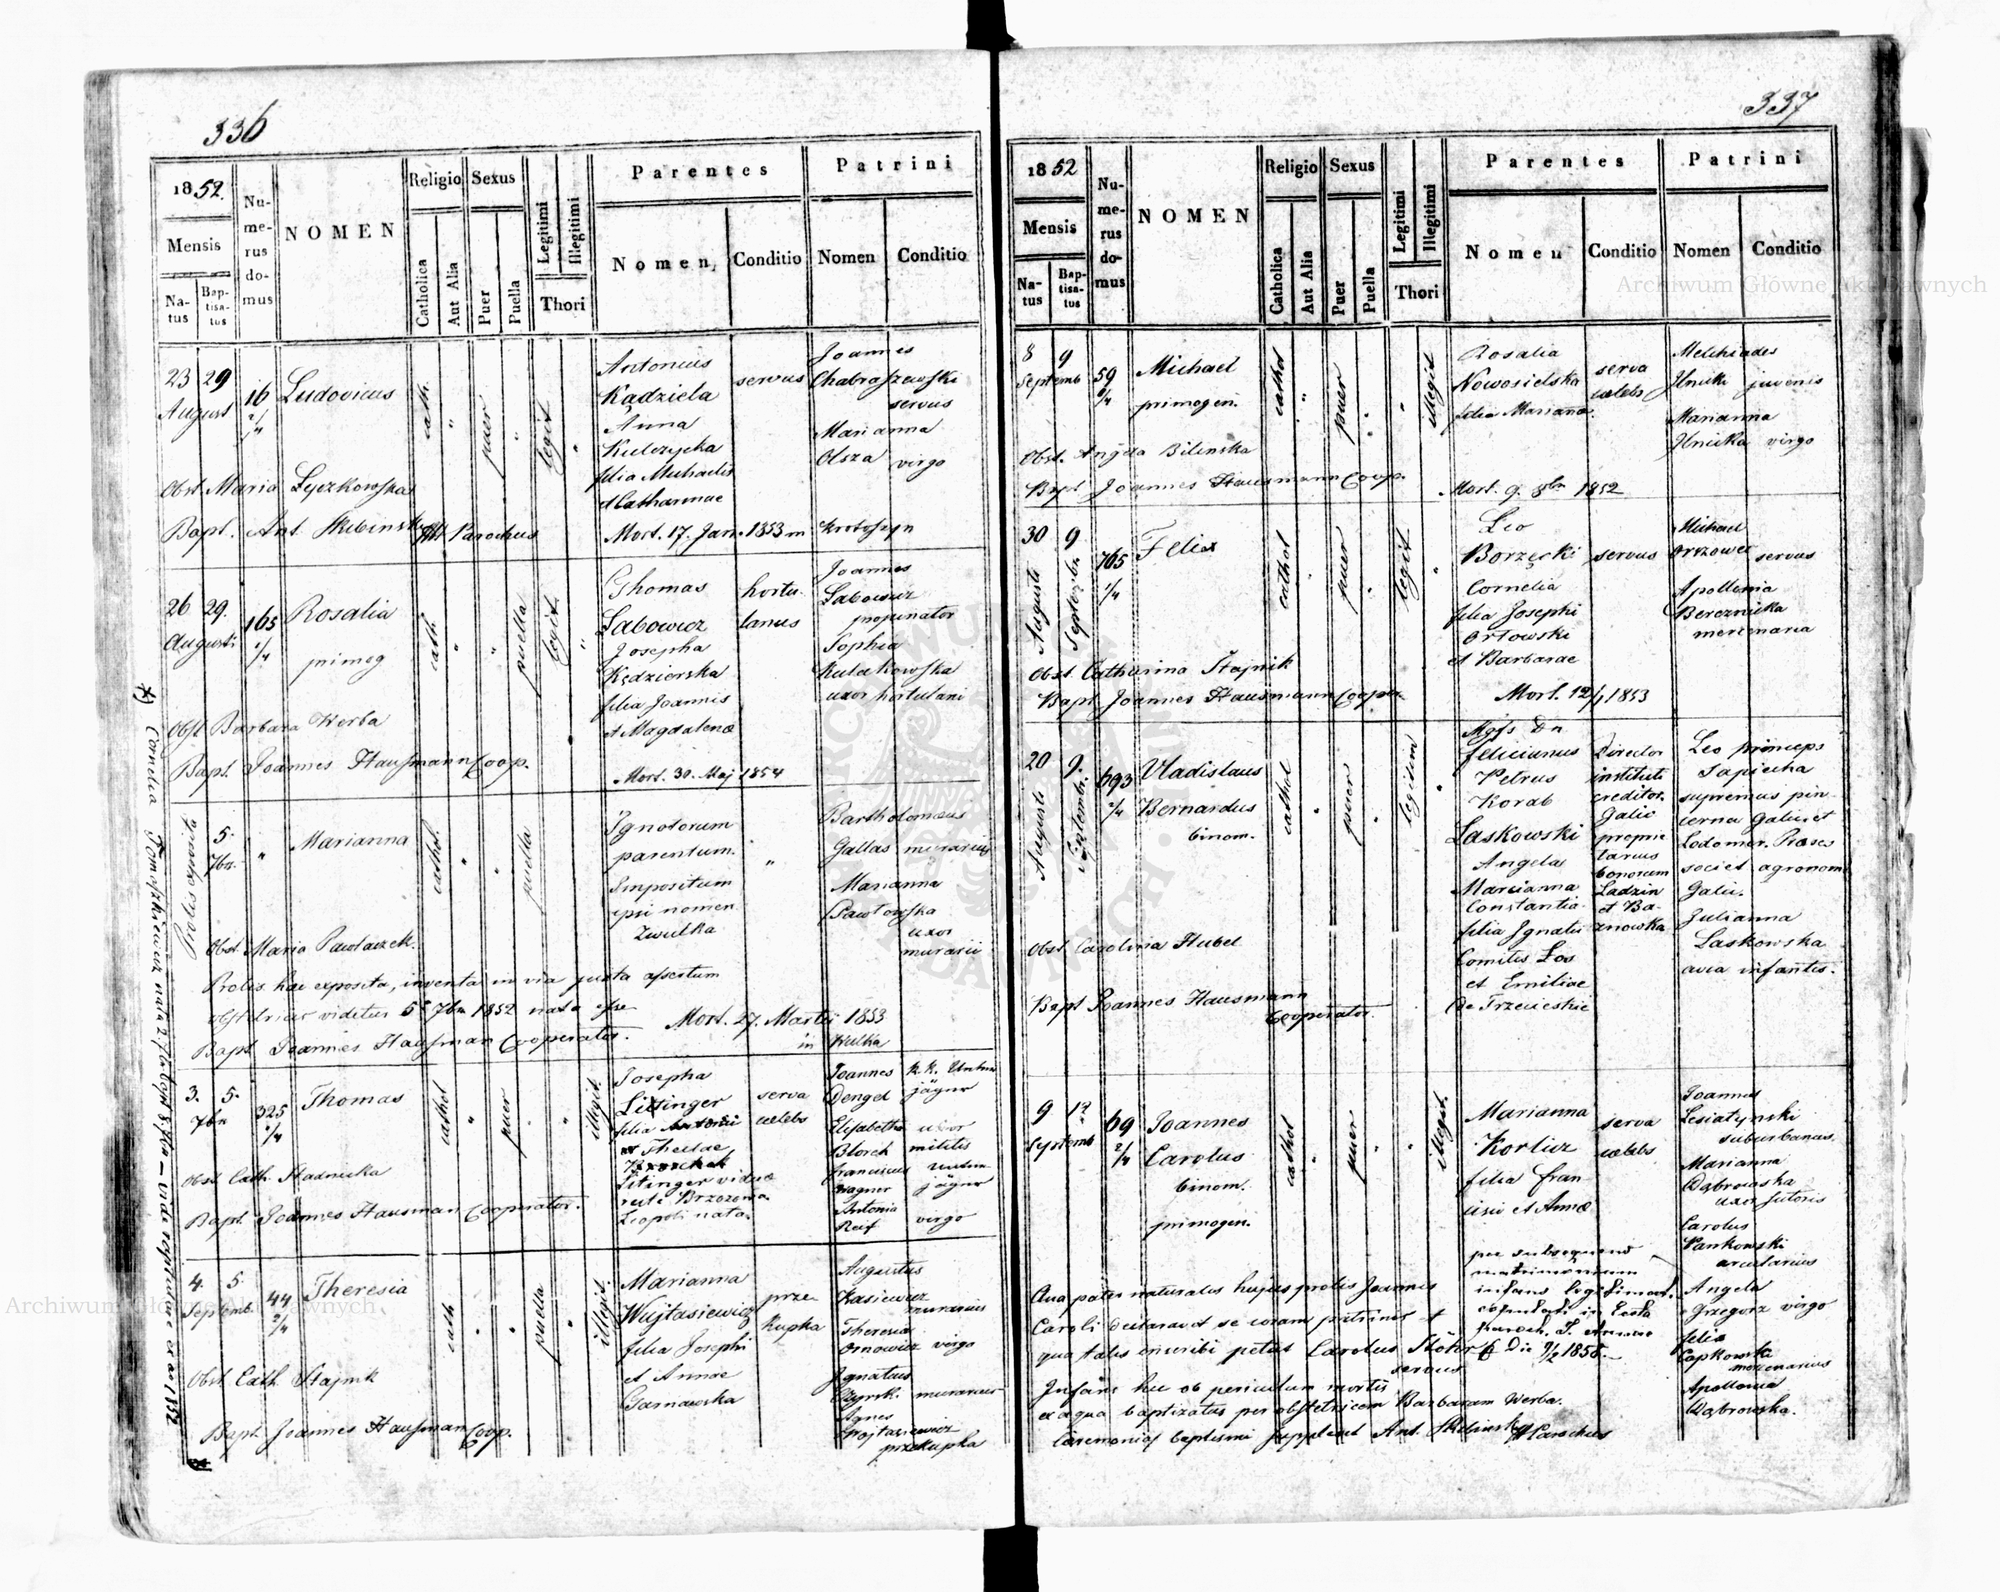 336
1852.
Mensis
Na-
tus
Bap-
tisa-
tus
Nu-
me-
rus
do-
mus
NOMEN
Religio
Catholica
Aut Alia
Sexus
Puer
Puella
Legitimi
Illegitimi
Thori
Parentes
Nomen
Conditio
Patrini
Nomen
Conditio
23 29
August
16
2/4
Ludovicus
cath.
puer
legit
Antonius
Kądziela
servus
Anna
Kulczycka
filia Michaelis
et Catharinae
Joannes
Chabraszewski
servus
Marianna
Olsza virgo
Obst. Maria Łyczkowska
Bapt. Ant. Skibinski Parochus
Mort. 17. Jan. 1853 in Krotoszyn
26 29.
Augusti
165
2/4
Rosalia
primog
cath
puella
legit.
Thomas
Sabowicz
hortu-
lanus
Josepha
Kędzierska
filia Joannis
et Magdalenae
Joannes
Sabowicz
propinator
Sophia
Kulakowska
uxor hortulani
Obst Barbara Werba
Bapt. Joannes Hausmann Coop.
Mort. 30. Maj 1854
5.
7br.
Marianna
cathol.
puella
Ignotorum
parentum.
Impositum
ipsi nomen
Zwulka
Bartholomaeus
Gallas murarius
Marianna
Pawłowska
uxor
murarii
Obst Maria Pawlaczek.
Proles haec exposita, inventa in via juxta assertum
obstetricis videtur 5ª 7br 1852 nata esse
Bapt Joannes Hausman Cooperator.
Mort. 27. Martii 1853
in Wulka
3. 5.
7br
325
2/4
Thomas
cathol
puer
illegit.
Josepha
Litinger
serva
caelebs
filia Antonii
Theclae
Litinger viduae
Leopoli nata.
Joannes
Dengel
jäger
Elisabetha
Blorek
uxor
militis
Franciscus
Wagner
jäger
Antonia
Reif virgo
Obst Cath. Stadnicka
Bapt. Joannes Hausman Cooperator.
4. 5.
Septemb.
44
2/4
Theresia
cath
puella
illegit.
Marianna
Wujtasiewicz
prze-
kupka
filia Josephi
et Annae
Garnawska
Augustus
Kasiewicz
murarius
Theresia
Ornowicz virgo
Ignatius
murarius
Agnes
Wojtasiewicz
przekupka
Obst Cath. Stajnik
Bapt Joannes Hausman Coop.
337
1852
Mensis
Na-
tus
Bap-
tisa-
tus
Nu-
me-
rus
do-
mus
NOMEN
Religio
Catholica
Aut Alia
Sexus
Puer
Puella
Legitimi
Illegitimi
Thori
Parentes
Nomen
Conditio
Patrini
Nomen
Conditio
8 9
Septemb
59
Michael
primogen.
cathol
puer
illegit
Rosalia
Nowosielska
filia Marianae
serva
caelebs
Melchiades
Ilnicki juvenis
Marianna
Ilnicka virgo
Obst. Angela Bilinska
Bapt Joannes Hausmann Coop.
Mort. 9. 8br 1852
30 9
Augusti
Septembr
765
2/4
Felix
cathol
puer
legit.
Leo
Borzęcki servus
Cornelia
filia Josephi
Orłowski
et Barbarae
Michael
servus
Apollonia
Bereznicka
mercenaria
Obst Catharina Stajnik
Bapt Joannes Hausmann Cooper.
Mort. 12/1 1853
20 9.
Augusti
Septembr.
693
2/4
Vladislaus
Bernardus
binom.
cathol
puer
legitim
Mgfs Dn
Felicianus
Petrus
Korab
Laskowski
Angela
Marianna
Constantia
filia Ignatii
Comitis Łos
et Emiliae
de Trzecieskie
Director
instituti
creditor.
Galic
proprie-
tarius
bonorum
Ladzin
et Ba-
znowka
Leo princeps
Sapieha
supremus pin-
cerna Galic et
Lodomer. Praeses
societ agronom
Galic.
Julianna
Laskowska
avia infantis.
Obst Carolina Hubel
Bapt Joannes Hausmann
Cooperator.
9 12
Septemb
69
2/4
Joannes
Carolus
binom.
primogen.
cathol
puer
illegit.
Marianna
Korlicz
filia Fran
cisci et Annae
serva
caelebs
Joannes
Lesiatynski
suburbanus.
Marianna
Dąbrowska
uxor sutoris
Carolus
Pankowski
arcularius
Angela
Grzegorz virgo
Felix
Capkowski
mercenarius
Apollonia
Dąbrowska.
per subsequens
matrimonium
infans legitimat.
Qua pater naturalis hujus prolis Joannis
Caroli declaravit se coram patrinis et
qua talis inscribi petiit Carolus Stöhr
servus
Infans hic ob periculum mortis
ex aqua baptizatus per obstetricem Barbaram Werba.
Ceremonias baptismi supplevit Ant. Skibinski Parochus
Archiwum Główne Akt Dawnych
Archiwum Główne Akt Dawnych